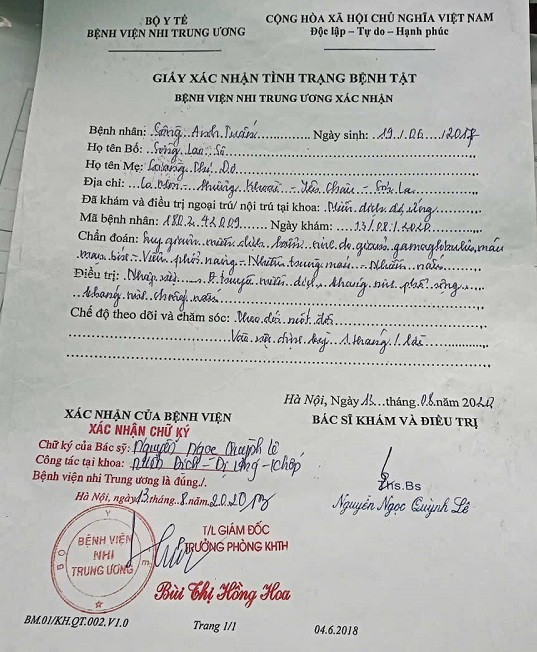 BỘ Y TẾ
BỆNH VIỆN NHI TRUNG ƯƠNG
CỘNG HÒA XÃ HỘI CHỦ NGHĨA VIỆT NAM
Độc lập – Tự do – Hạnh phúc
GIẤY XÁC NHẬN TÌNH TRẠNG BỆNH TẬT
BỆNH VIỆN NHI TRUNG ƯƠNG XÁC NHẬN
Bệnh nhân: Sồng Anh Tuấn Ngày sinh: 19/06/2017
Họ tên Bố: Sồng Lao
Họ tên Mẹ: Thị
Địa chỉ: Khoài - Yên Châu - Sơn La
Đã khám và điều trị ngoại trú/ nội trú tại khoa: Miễn dịch dị ứng
Mã bệnh nhân: 180242009 Ngày khám: 13/08/2020
Chẩn đoán: Suy giảm miễn dịch bẩm sinh do giảm gamaglobulin máu
- Viêm phổi nặng - Nhiễm trùng máu - Nhiễm nấm
Điều trị: Nhập viện truyền miễn dịch, kháng sinh phổ rộng
kháng sinh chống nấm
Chế độ theo dõi và chăm sóc: Theo dõi
định kỳ 1 tháng/1 lần
Hà Nội, Ngày 13 tháng 08 năm 2020
XÁC NHẬN CỦA BỆNH VIỆN
BÁC SĨ KHÁM VÀ ĐIỀU TRỊ
XÁC NHẬN CHỮ KÝ
Chữ ký của Bác sỹ: Nguyễn Ngọc Quỳnh Lê
Công tác tại khoa: Miễn Dịch - Dị ứng - Khớp
Bệnh viện nhi Trung ương là đúng./.
Hà Nội, ngày 13 tháng 8 năm 2020
Ths.Bs
Nguyễn Ngọc Quỳnh Lê
T/L GIÁM ĐỐC
TRƯỞNG PHÒNG KHTH
BỘ Y
BỆNH VIỆN
NHI
TRUNG ƯƠNG
Bùi Thị Hồng Hoa
BM.01/KH.QT.002.V1.0
Trang 1/1
04.6.2018